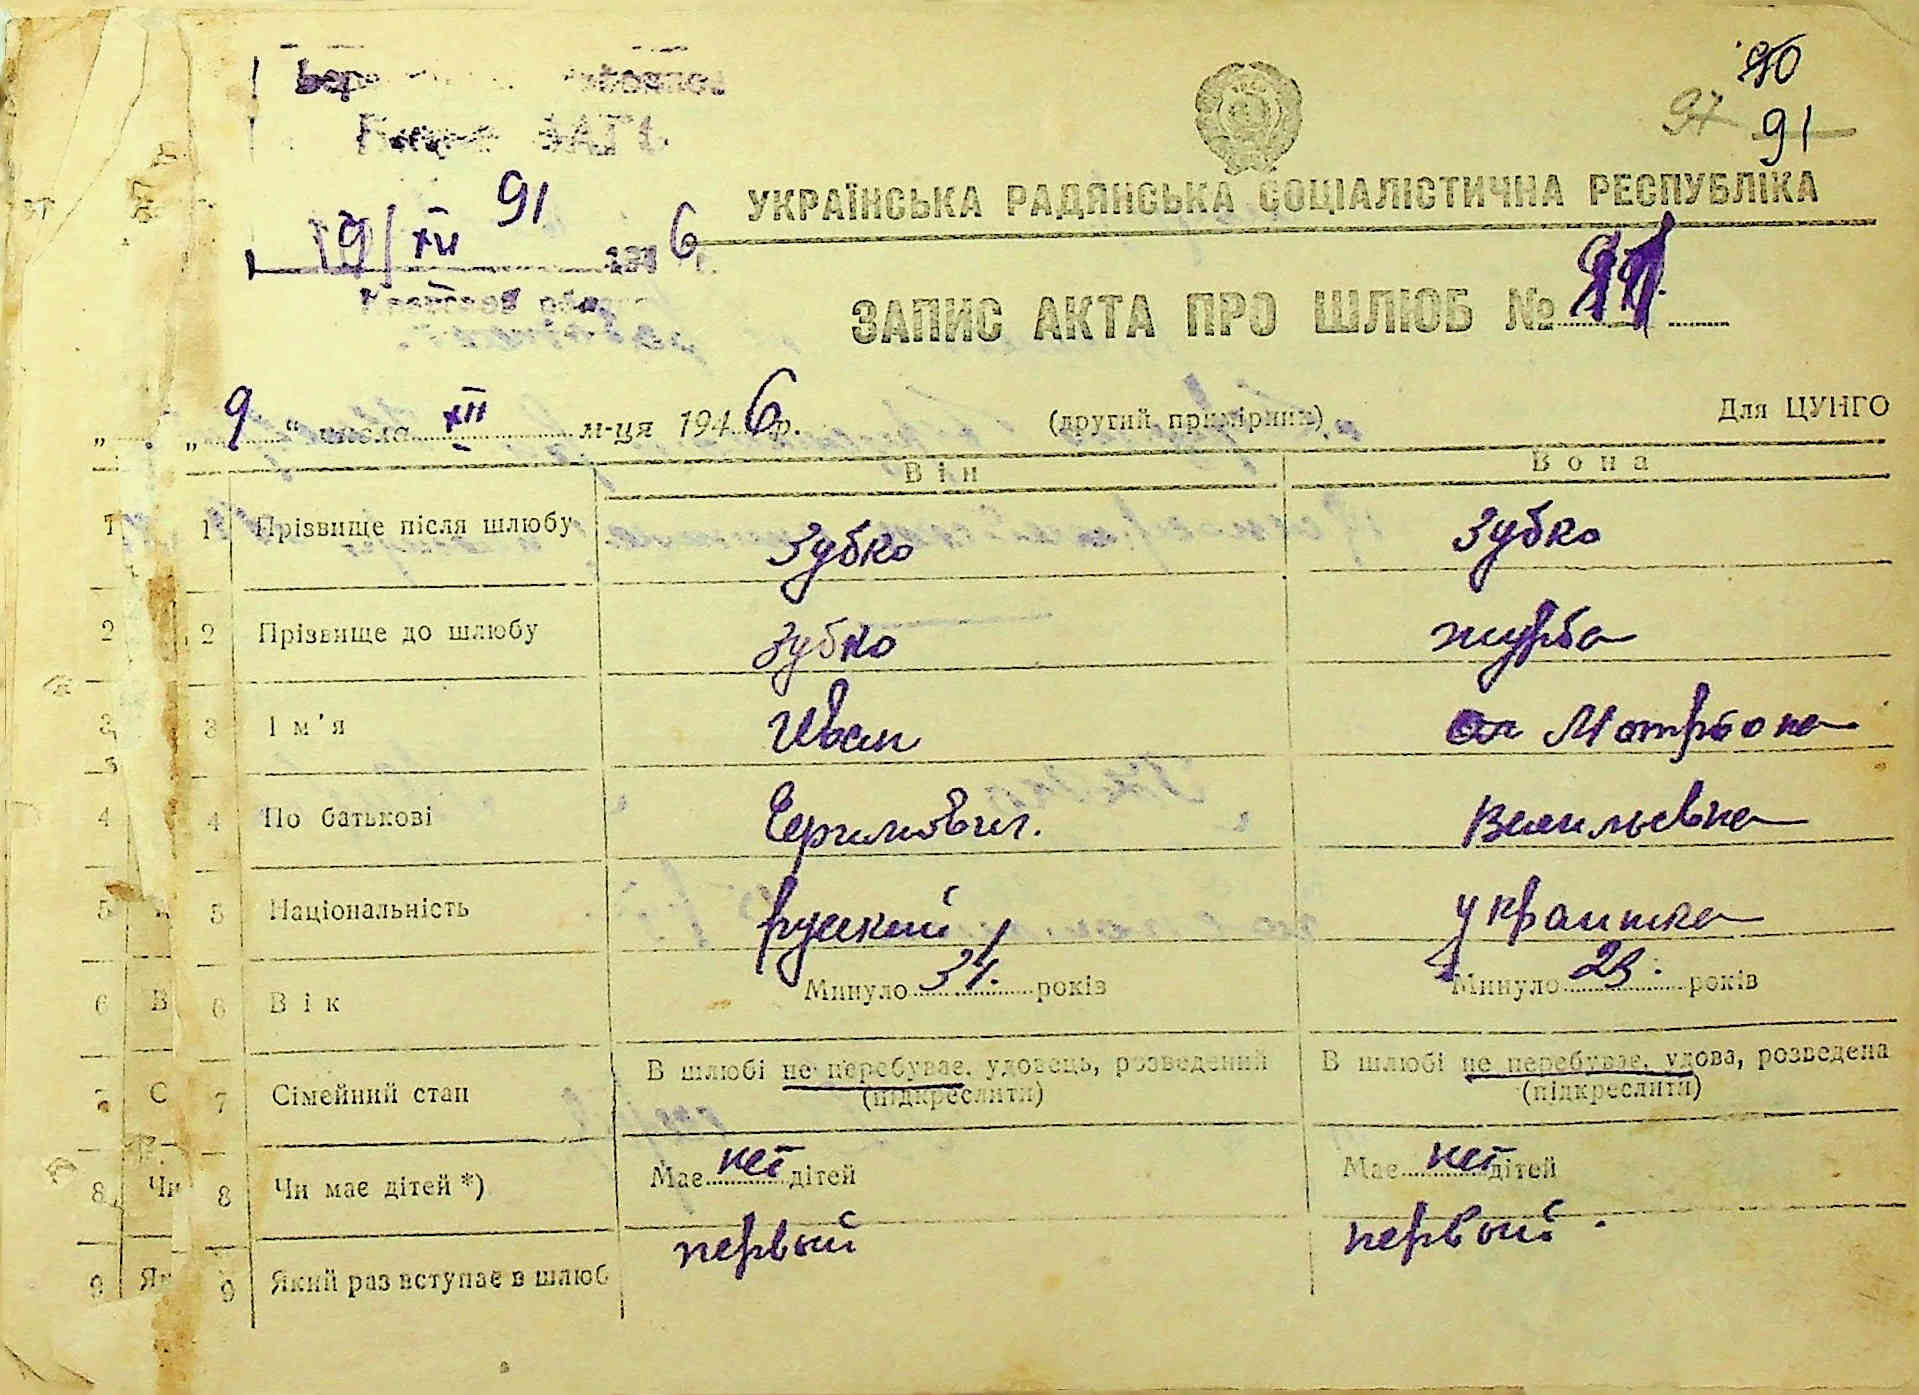 90
97 91
УКРАЇНСЬКА РАДЯНСЬКА СОЦІАЛІСТИЧНА РЕСПУБЛІКА
91
19/XII 194 6 г.
ЗАПИС АКТА ПРО ШЛЮБ № 91
„ 9 “ числа XII м-ця 194 6 р. (другий примірник) Для ЦУНГО
Він Вона
1 1 Прізвище після шлюбу Зубко Зубко
2 2 Прізвище до шлюбу Зубко журба
3 3 Ім'я Иван Матрьона
4 4 По батькові Васильевна
5 5 Національність русский украинка
6 В 6 Вік Минуло 34. років Минуло 23. років
7 С 7 Сімейний стан В шлюбі не перебуває, удовець, розведений В шлюбі не перебуває, удова, розведена
(підкреслити) (підкреслити)
8 Чи 8 Чи має дітей *) Має нет дітей Має нет дітей
9 Як 9 Який раз вступає в шлюб первый первый